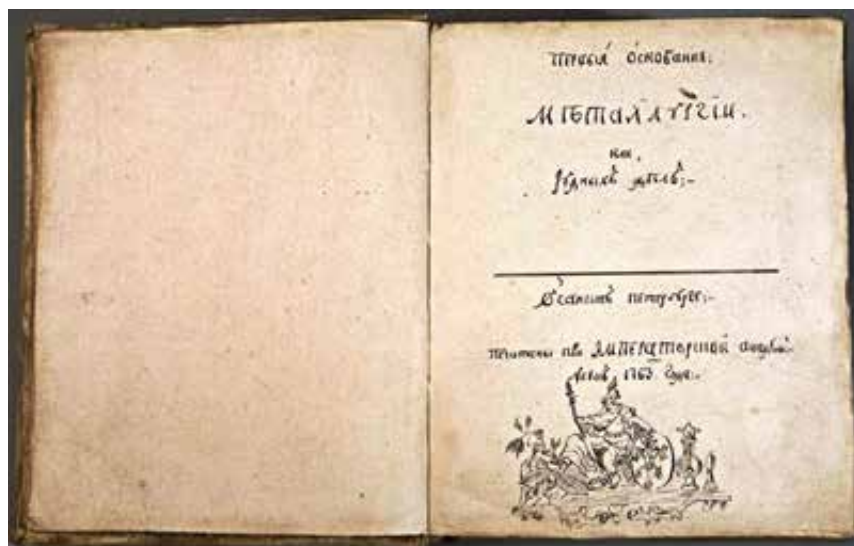 первыя основания,
МѢТАЛЛУРГІИ.
или,
рудныхъ дѣлъ;-
Всанктъ петербурге;-
печатаны при ИМПЕРАТОРСКОЙ
наукъ 1763 года:-